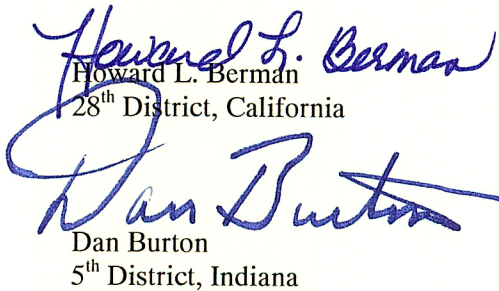 Howard L. Berman
Howard L. Berman
28th District, California
Dan Burton
Dan Burton
5th District, Indiana